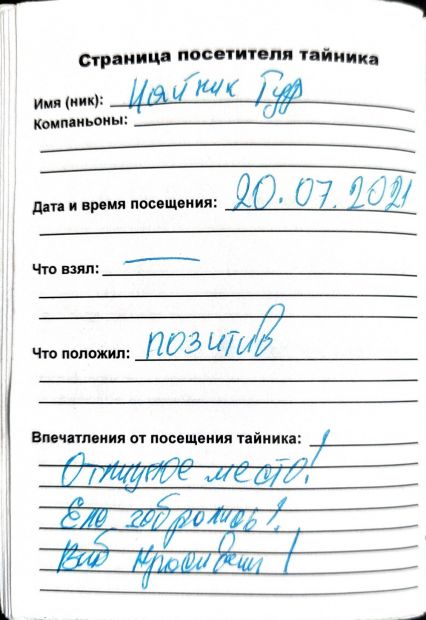 Страница посетителя тайника
Имя (ник):
Компаньоны:
Дата и время посещения: 20.07.2021
Что взял: —
Что положил: позитив
Впечатления от посещения тайника:
Отличное место!
Еле забрались!
Вид красивый!